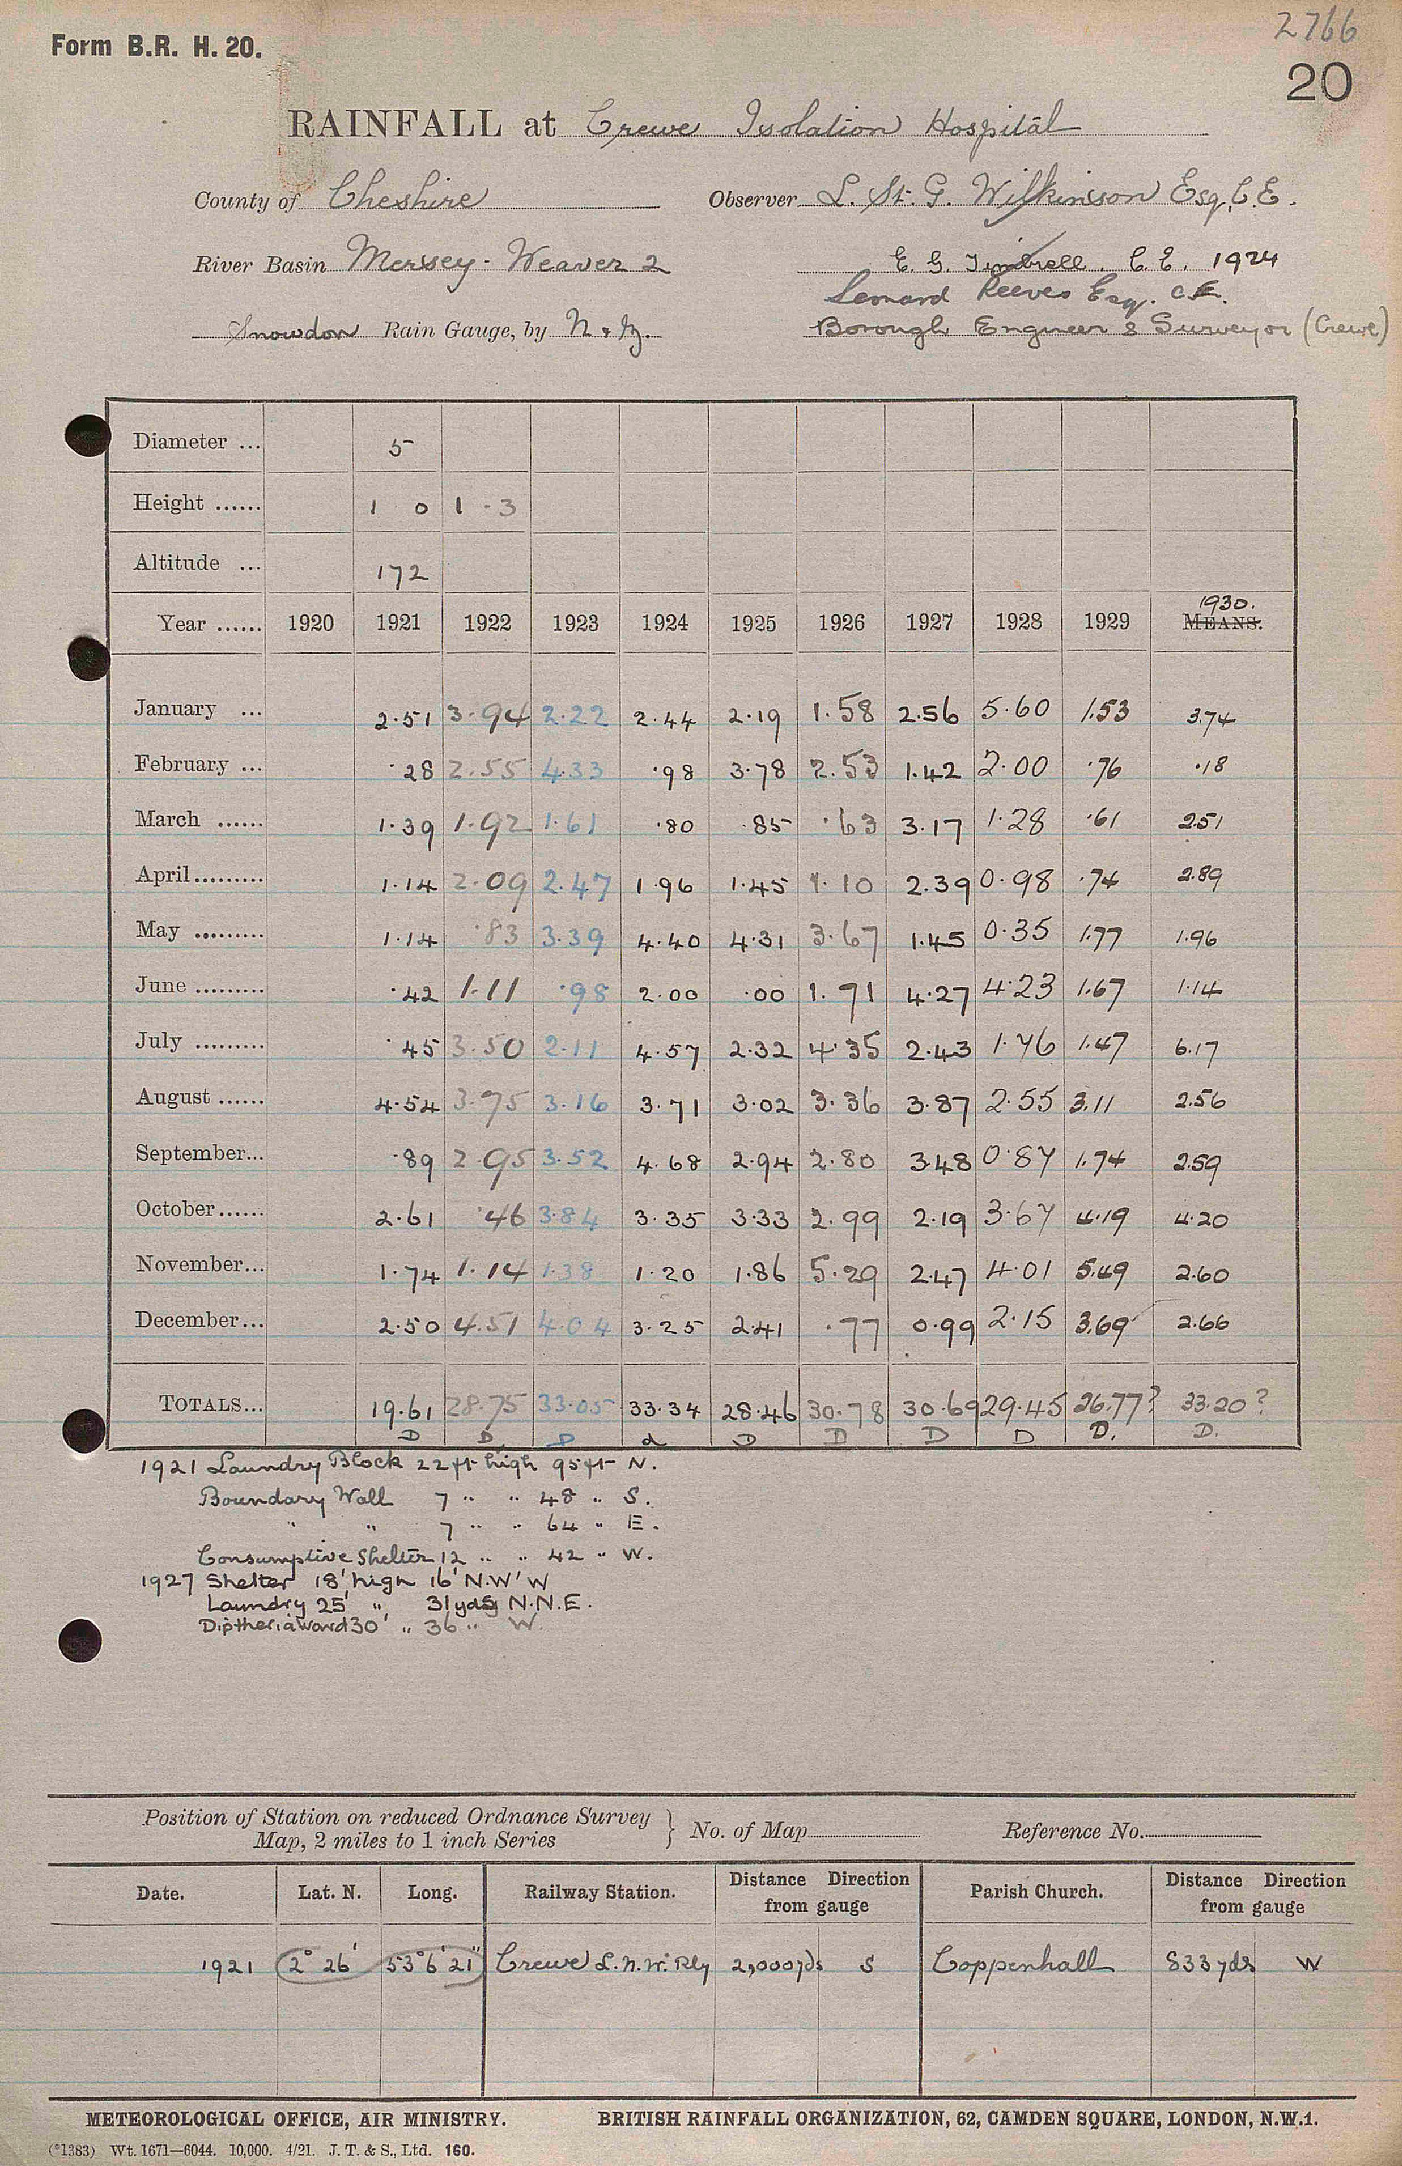 2766
Form B.R. H. 20.
20
RAINFALL at Crewe Isolation Hospital
County of Cheshire Observer L. St. G. Wilkinson Esq, C.E.
River Basin Mersey - Weaver 2 E. G. Timbrell. C.E. 1924
Leonard Reeves Esq. C.E.
Snowdon Rain Gauge, by N & Z. Borough Engineer & Surveyor (Crewe)
Diameter ... 5
Height ...... 1 0 1 - 3
Altitude ... 172
1930.
Year ...... 1920 1921 1922 1923 1924 1925 1926 1927 1928 1929 MEANS.
January ... 2.51 3.94 2.22 2.44 2.19 1.58 2.56 5.60 1.53 3.74
February ... .28 2.55 4.33 .98 3.78 2.53 1.42 2.00 .76 .18
March ...... 1.39 1.92 1.61 .80 .85 .63 3.17 1.28 .61 2.51
April......... 1.14 2.09 2.47 1.96 1.45 1.10 2.39 0.98 .74 2.89
May ......... 1.14 .83 3.39 4.40 4.31 3.67 1.45 0.35 1.77 1.96
June ......... .42 1.11 .98 2.00 .00 1.71 4.27 4.23 1.67 1.14
July ......... .45 3.50 2.11 4.57 2.32 4.35 2.43 1.76 1.47 6.17
August ...... 4.54 3.75 3.16 3.71 3.02 3.36 3.87 2.55 3.11 2.56
September... .89 2.95 3.52 4.68 2.94 2.80 3.48 0.87 1.74 2.59
October...... 2.61 .46 3.84 3.35 3.33 2.99 2.19 3.67 4.19 4.20
November... 1.74 1.14 1.38 1.20 1.86 5.29 2.47 4.01 5.49 2.60
December... 2.50 4.51 4.04 3.25 2.41 .77 0.99 2.15 3.69 2.66
TOTALS... 19.61 28.75 33.05 33.34 28.46 30.78 30.69 29.45 26.77? 33.20?
D D D d D D D D D. D.
1921 Laundry Block 22 ft high 95 ft N.
Boundary Wall 7 " " 48 " S.
" " 7 " " 64 " E.
Consumptive Shelter 12 " " 42 " W.
1927 Shelter 18' high 16' N.W' W
Laundry 25' " 31 yds N.N.E.
Diptheria ward 30' " 36 " W.
Position of Station on reduced Ordnance Survey
Map, 2 miles to 1 inch Series } No. of Map Reference No.
Date. Lat. N. Long. Railway Station. Distance Direction from gauge Parish Church. Distance Direction from gauge
1921 2° 26' 53° 6' 21" Crewe L.N.W. Rly 2,000 yds S Coppenhall 833 yds W
METEOROLOGICAL OFFICE, AIR MINISTRY. BRITISH RAINFALL ORGANIZATION, 62, CAMDEN SQUARE, LONDON, N.W.1.
(*1383) Wt. 1671—6044. 10,000. 4/21. J. T. & S., Ltd. 160.